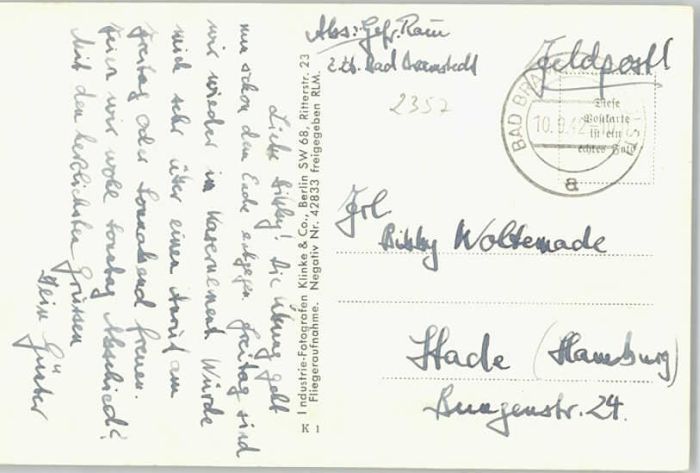 Abs: Gefr. Rau
z. Zt. Bad Bramstedt
Feldpost!
2357
BAD BRA
10.9.42
a
Diese
Postkarte
ist ein
echtes Foto
Frl
Bibby Woltemade
Stade (Hamburg)
Bungenstr. 24.
Liebe Bibby! Die Übung geht
nun schon dem Ende entgegen. Freitag sind
wir wieder im Kasernement. Würde
mich sehr über einen Anruf am
Freitag oder Sonnabend freuen.
Feiern wir wohl Sonntag Abschied?
Mit den herzlichsten Grüssen
Dein Günter
Industrie-Fotografen Klinke & Co., Berlin SW 68, Ritterstr. 23
Fliegeraufnahme. Negativ Nr. 42833 freigegeben RLM.
K 1